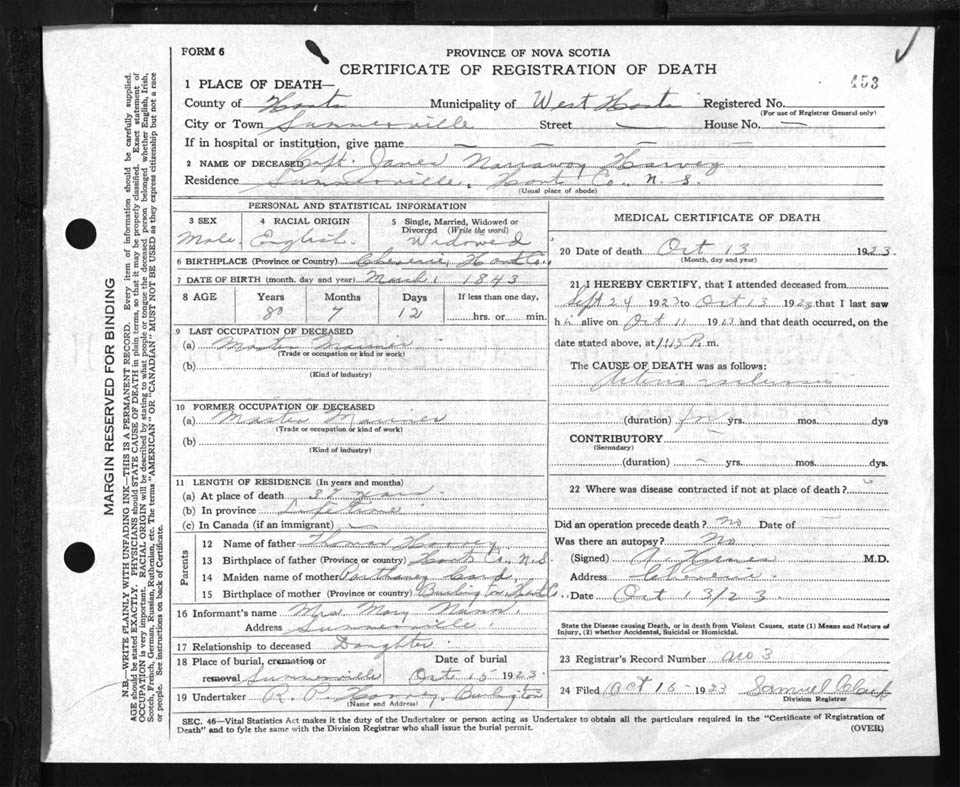 FORM 6
PROVINCE OF NOVA SCOTIA
CERTIFICATE OF REGISTRATION OF DEATH
453
1 PLACE OF DEATH—
County of Hants Municipality of West Hants Registered No.
(For use of Registrar General only)
City or Town Summerville Street — House No. —
If in hospital or institution, give name — — — —
2 NAME OF DECEASED Capt. James Narraway Harvey
Residence Summerville, Hants Co., N.S.
(Usual place of abode)
PERSONAL AND STATISTICAL INFORMATION
3 SEX
Male.
4 RACIAL ORIGIN
English.
5 Single, Married, Widowed or Divorced (Write the word)
Widowed
6 BIRTHPLACE (Province or Country) Cheverie, Hants Co.,
7 DATE OF BIRTH (month, day and year) March 1 1843
8 AGE Years Months Days If less than one day,
80 7 12 hrs. or min.
9 LAST OCCUPATION OF DECEASED
(a) Master Mariner
(Trade or occupation or kind of work)
(b)
(Kind of industry)
10 FORMER OCCUPATION OF DECEASED
(a) Master Mariner
(Trade or occupation or kind of work)
(b)
(Kind of industry)
11 LENGTH OF RESIDENCE (In years and months)
(a) At place of death 37 years.
(b) In province Lifetime
(c) In Canada (if an immigrant) —
Parents
12 Name of father Thomas Harvey
13 Birthplace of father (Province or country) Hants Co., N.S
14 Maiden name of mother Card
15 Birthplace of mother (Province or country) Burlington, Hants Co.
16 Informant's name Mrs. Mary Mann
Address Summerville.
17 Relationship to deceased Daughter
18 Place of burial, cremation or removal Summerville Date of burial Oct 15 1923
19 Undertaker R. P. Harvey, Burlington
(Name and Address)
MEDICAL CERTIFICATE OF DEATH
20 Date of death Oct 13 1923.
(Month, day and year)
21 I HEREBY CERTIFY, that I attended deceased from
Sept 24 1923 to Oct 13 1923 that I last saw
h im alive on Oct 11 1923 and that death occurred, on the
date stated above, at P. m.
The CAUSE OF DEATH was as follows:
(duration) yrs. mos. dys
CONTRIBUTORY
(Secondary)
(duration) — yrs. mos. dys.
22 Where was disease contracted if not at place of death?
Did an operation precede death? No Date of —
Was there an autopsy? No
(Signed) M.D.
Address Cheverie.
Date Oct 13/23
State the Disease causing Death, or in death from Violent Causes, state (1) Means and Nature of Injury, (2) whether Accidental, Suicidal or Homicidal.
23 Registrar's Record Number No 3
24 Filed Oct 15 1923 Samuel
Division Registrar
SEC. 46—Vital Statistics Act makes it the duty of the Undertaker or person acting as Undertaker to obtain all the particulars required in the "Certificate of Registration of
Death" and to fyle the same with the Division Registrar who shall issue the burial permit.
(OVER)
MARGIN RESERVED FOR BINDING
N.B.—WRITE PLAINLY WITH UNFADING INK—THIS IS A PERMANENT RECORD. Every item of information should be carefully supplied.
AGE should be stated EXACTLY. PHYSICIANS should STATE CAUSE OF DEATH in plain terms, so that it may be properly classified. Exact statement of
OCCUPATION is very important. RACIAL ORIGIN will be described by stating to what people or tongue the deceased person belonged whether English, Irish,
Scotch, French, German, Russian, Ruthenian, etc. The terms "AMERICAN" OR "CANADIAN" MUST NOT BE USED as they express citizenship but not a race
or people. See instructions on back of Certificate.